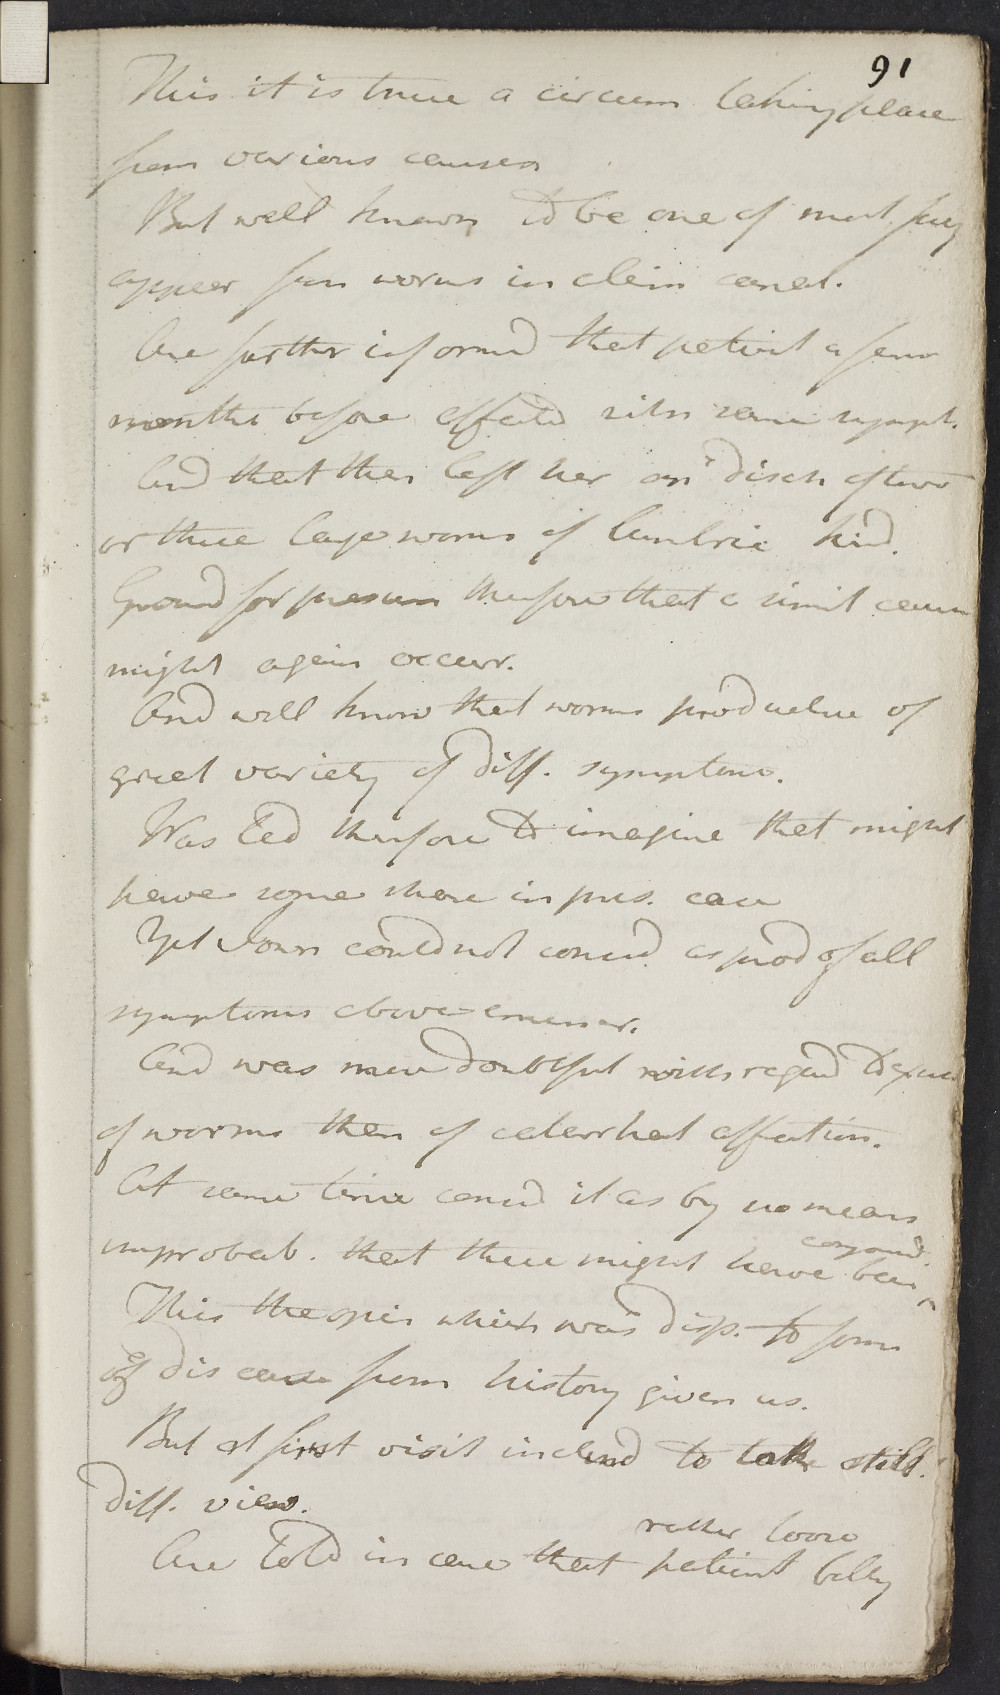 91
This it is true a circum taking place
from various causes
But well known to be one of most freq
appear from worms in alim canal.
Are further informed that patient a few
months before affected with same sympt.
And that then left her on disch of two
or three large worms of lumbric kind.
Ground for presum therefore that a simil cause
might again occurr.
And well know that worms productive of
great variety of diff. symptoms.
Was led therefore to imagine that might
have some share in pres. case
Yet I own could not consid. as prod of all
symptoms above enumer.
And was more doubtful with regard to
of worms than of catarrhal affection.
At same time consid it as by no means
improbab. that there might have been
conjoind.
This the opin which was disp. to form
of disease from history given us.
But at first visit inclined to take still
diff. view.
rather loose
Are told in case that patient belly